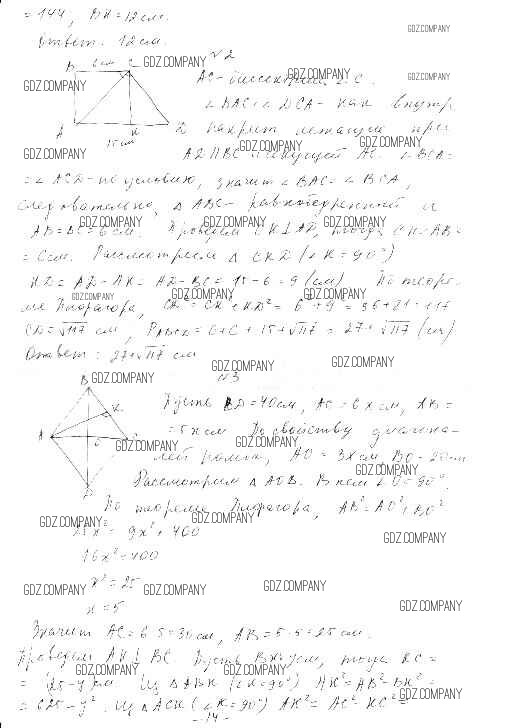 = 144, BH = 12 см.
Ответ: 12 см.
№2
AC - биссектриса ∠C.
∠BAC = ∠DCA - как внутр.
накрест лежащие при
AD ∥ BC и секущей AC. ∠BCA =
= ∠ACD - по условию, значит ∠BAC = ∠BCA,
следовательно, ΔABC - равнобедренный и
AB = BC = 6 см. Проведем CK ⊥ AD, тогда CK = AB =
= 6 см. Рассмотрим ΔCKD (∠K = 90°)
KD = AD - AK = AD - BC = 15 - 6 = 9 (см) По теоре-
ме Пифагора, CD² = CK² + KD² = 6² + 9² = 36 + 81 = 117
CD = √117 см, P ABCD = 6 + 6 + 15 + √117 = 27 + √117 (см)
Ответ: 27 + √117 см
№3
Пусть BD = 40 см, AC = 6x см, AB =
= 5x см По свойству диагона-
лей ромба, AO = 3x см BO = 20 см
Рассмотрим ΔAOB. В нем ∠O = 90°.
По теореме Пифагора, AB² = AO² + BO²
25x² = 9x² + 400
16x² = 400
x² = 25
x = 5
Значит AC = 6·5 = 30 см, AB = 5·5 = 25 см.
Проведем AK ⊥ BC. Пусть BK = y см, тогда KC =
= (25 - y) см. Из ΔABK (∠K = 90°) AK² = AB² - BK² =
= 625 - y². Из ΔACK (∠K = 90°) AK² = AC² - KC² =
- 14 -
B 6 см C
A K D
15 см
B
K
A O C
D
GDZ.COMPANY